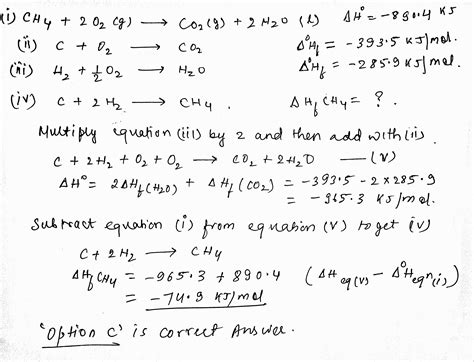 (i) CH4 + 2 O2 (g) → CO2 (g) + 2 H2O (l) ΔH° = -890.4 KJ
(ii) C + O2 → CO2 Δ°Hf = -393.5 KJ/mol.
(iii) H2 + ½ O2 → H2O Δ°Hf = -285.9 KJ/mol.
(iv) C + 2 H2 → CH4 . ΔHf CH4 = ? .
Multiply equation (iii) by 2 and then add with (ii) .
C + 2H2 + O2 + O2 → CO2 + 2H2O — (V)
ΔH° = 2ΔHf (H2O) + ΔHf (CO2) = -393.5 - 2 x 285.9
= -965.3 KJ/mol.
Subtract equation (i) from equation (V) to get (iv)
C + 2H2 → CH4
ΔHf CH4 = -965.3 + 890.4 (ΔH eq (v) - Δ°H eqn (i))
= -74.9 KJ/mol
'Option C' is correct Answer.